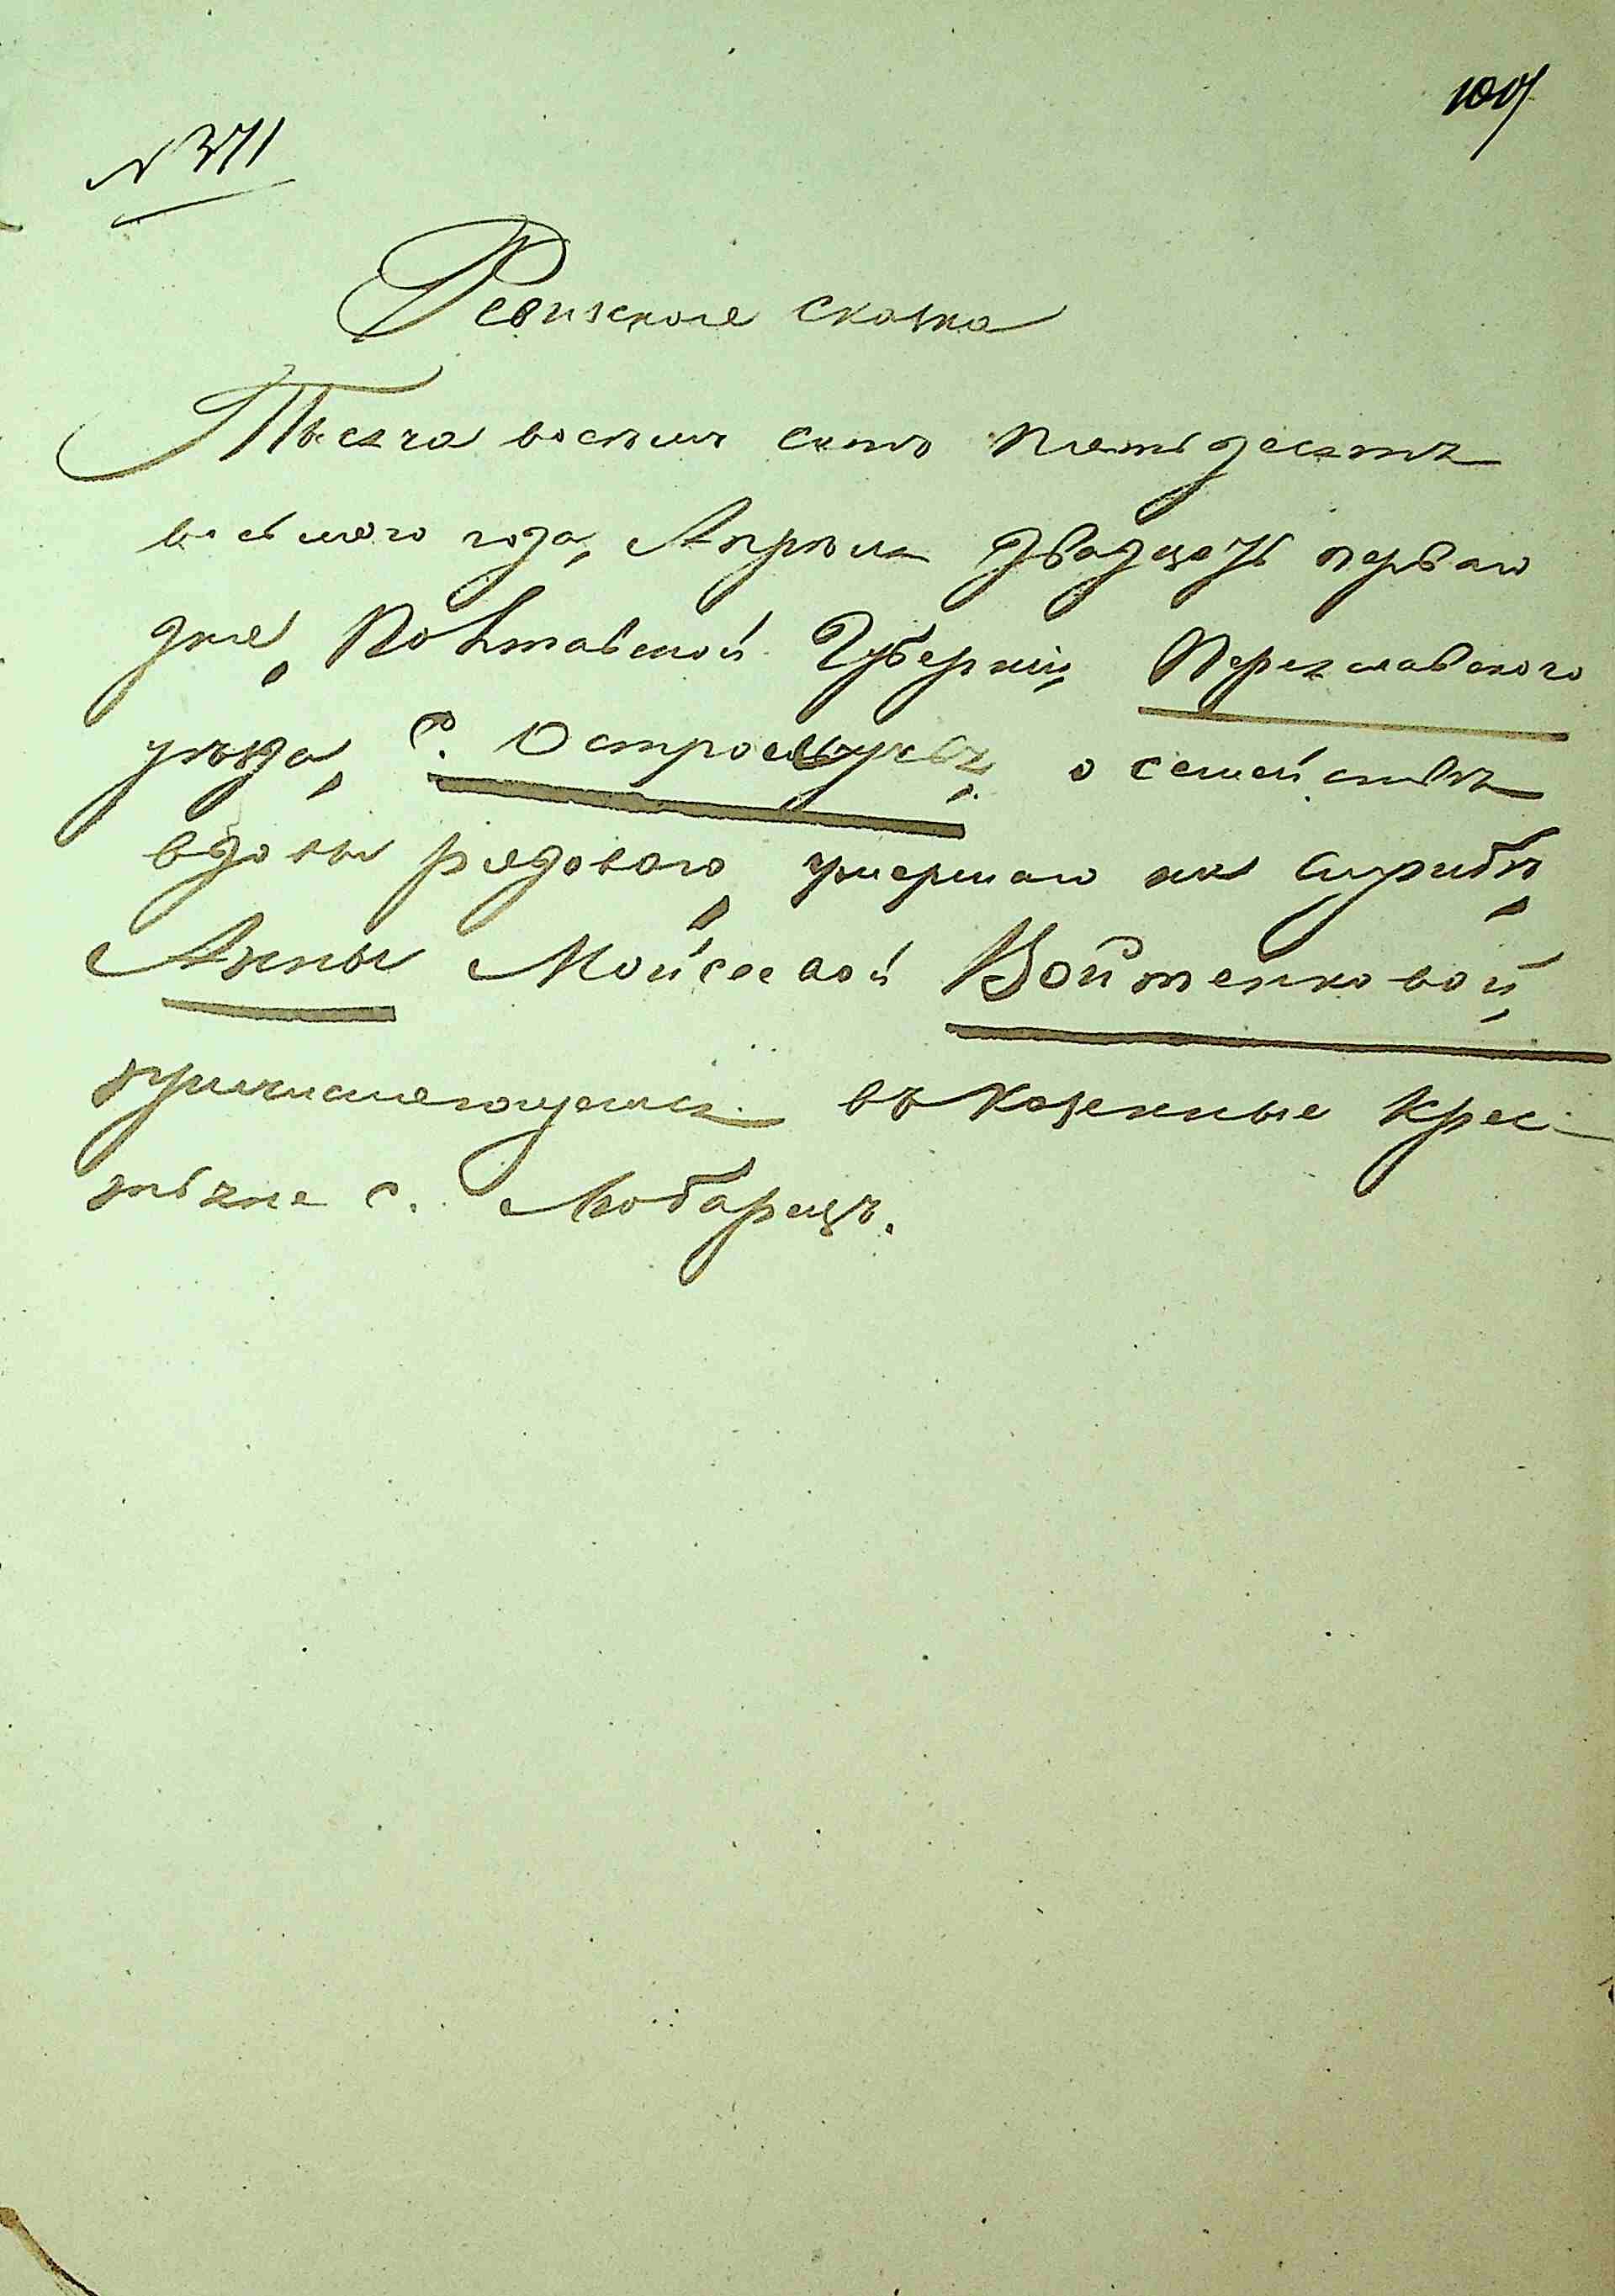 № 371
Ревизская сказка
Тысяча восемь сотъ пятьдесятъ
восьмого года, Апрѣля двадцать перваго
дня, Полтавской Губерніи, Переяславского
уѣзда, С. Остролучья, о семействѣ
вдовы рядоваго, умершаго на службѣ,
Анны Мойсеевой Войтенковой,
причисляющемся въ казенные крес-
тьяне с. Любарецъ.